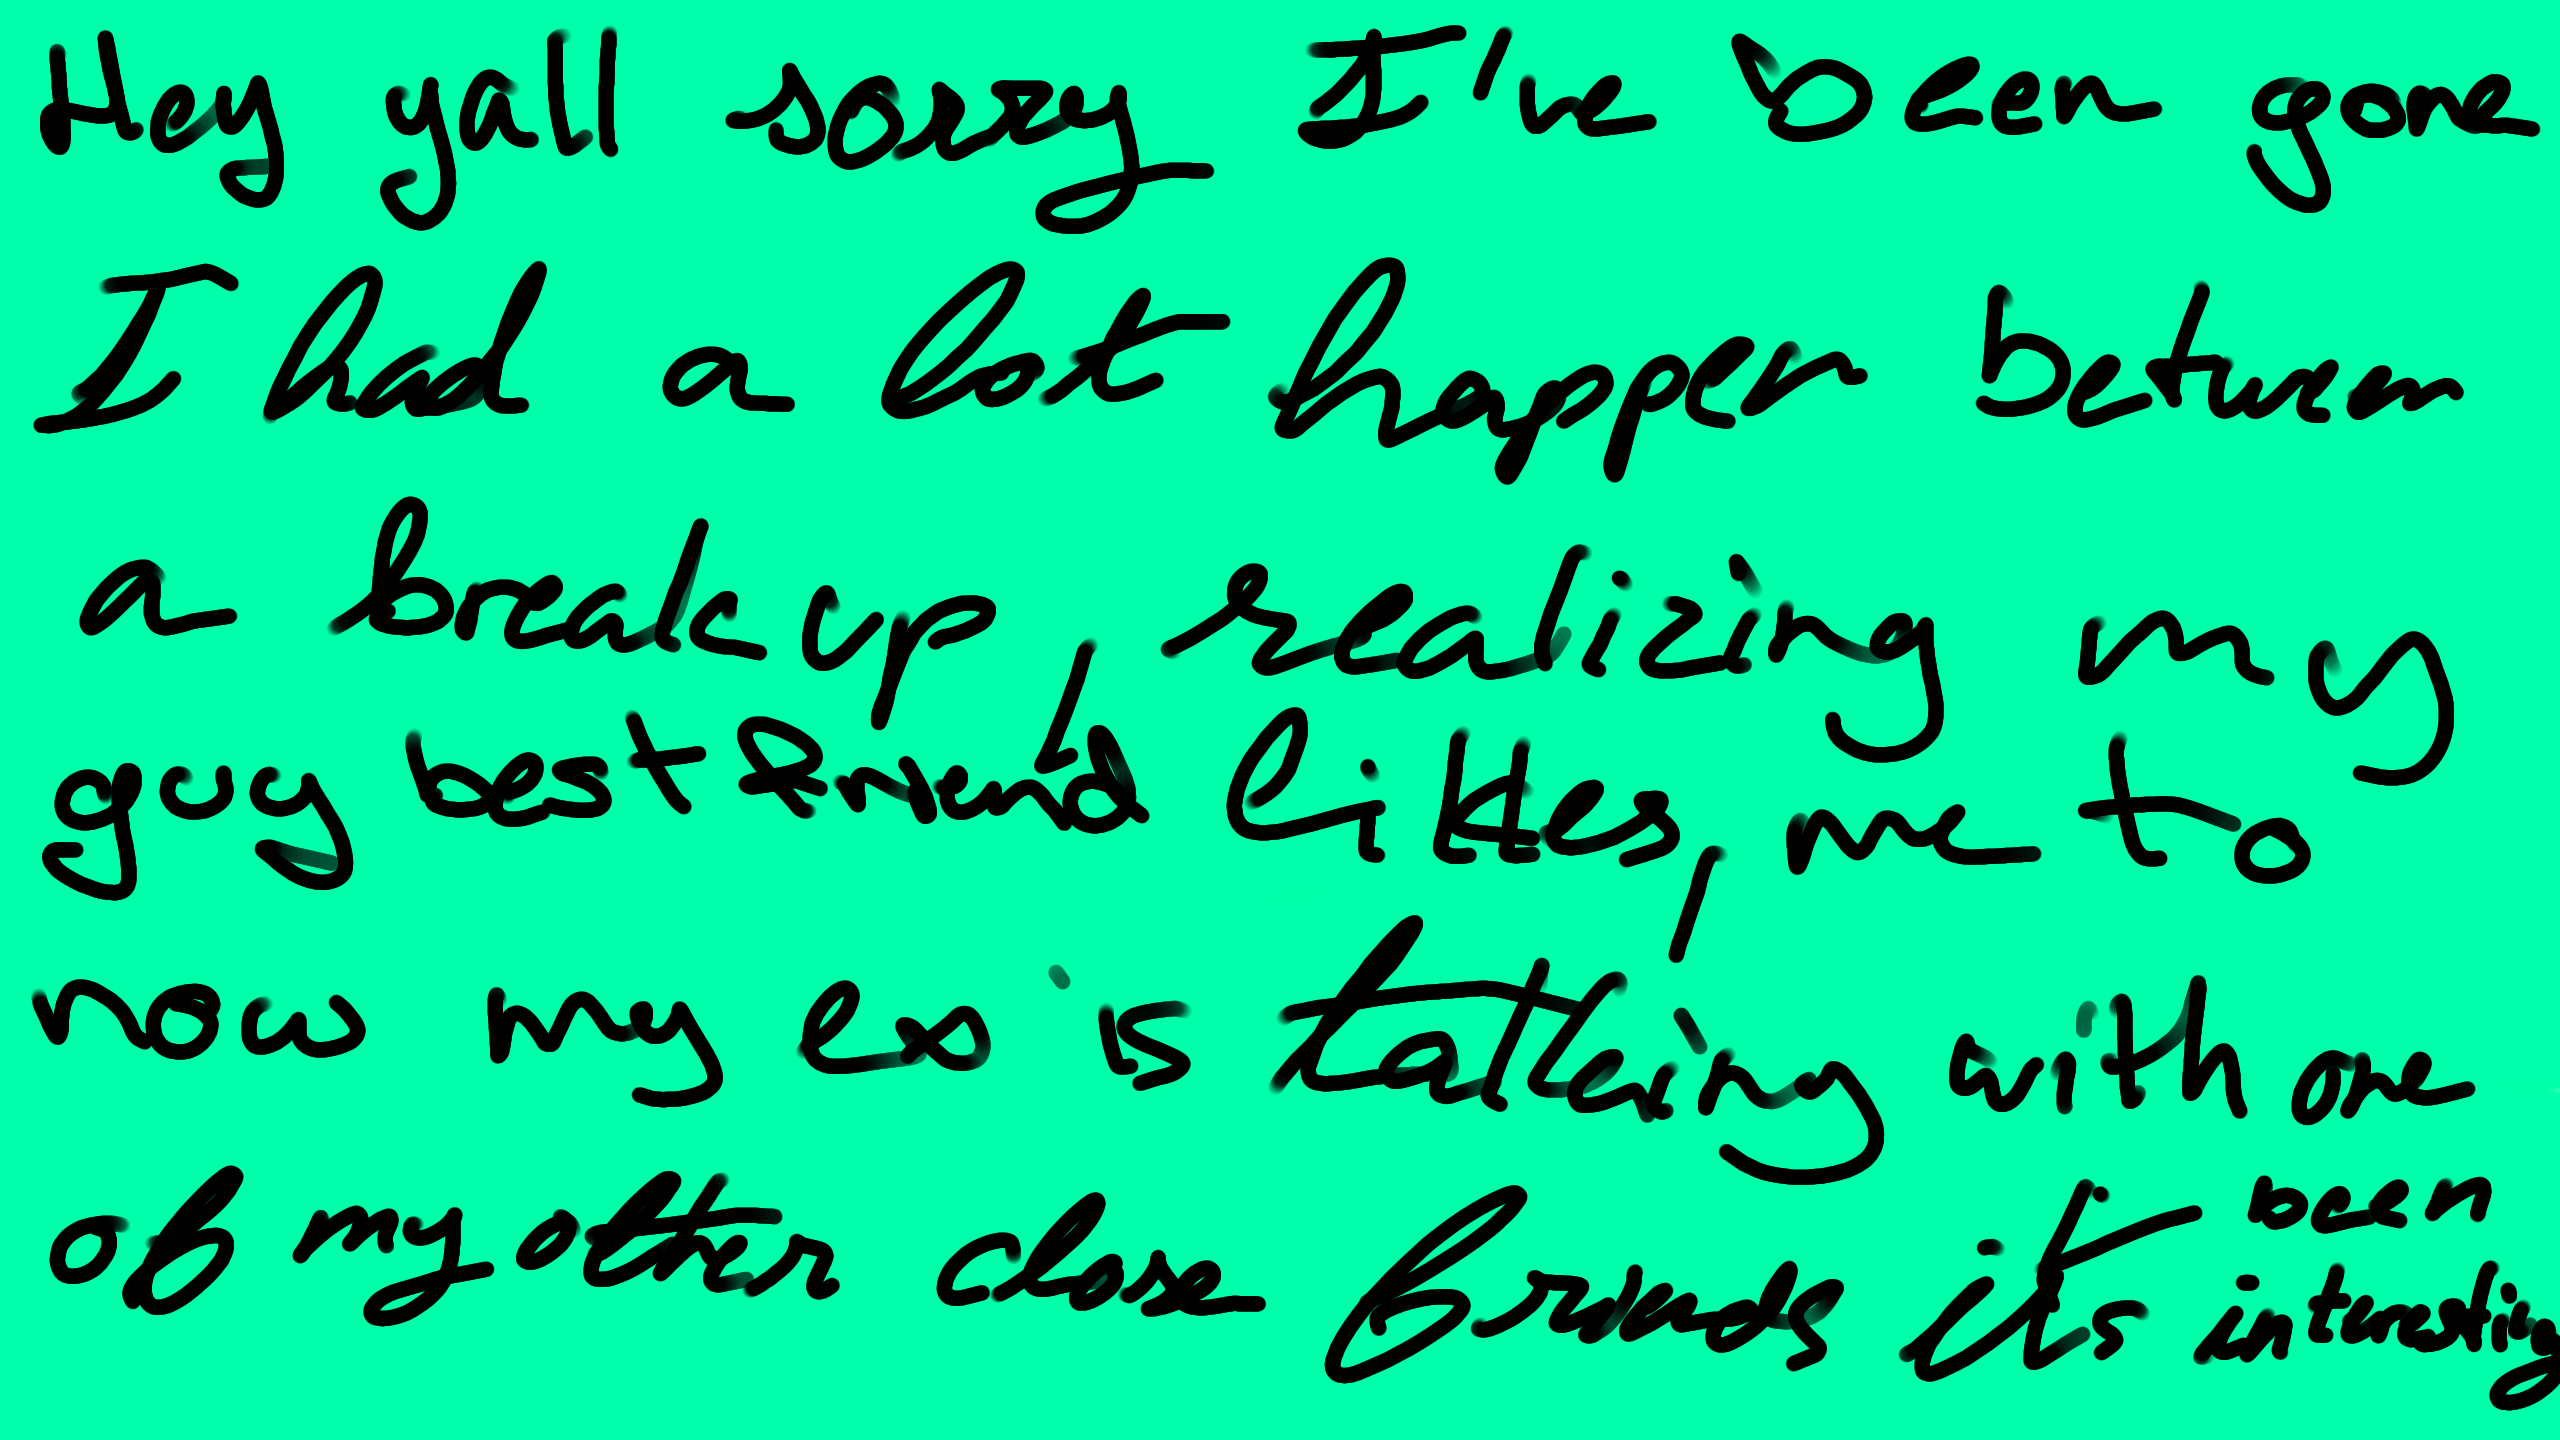 Hey yall sorry I've been gone
I had a lot happen between
a breakup, realizing my
guy best friend likes, me to
now my ex is talking with one
of my other close friends it's been
interesting